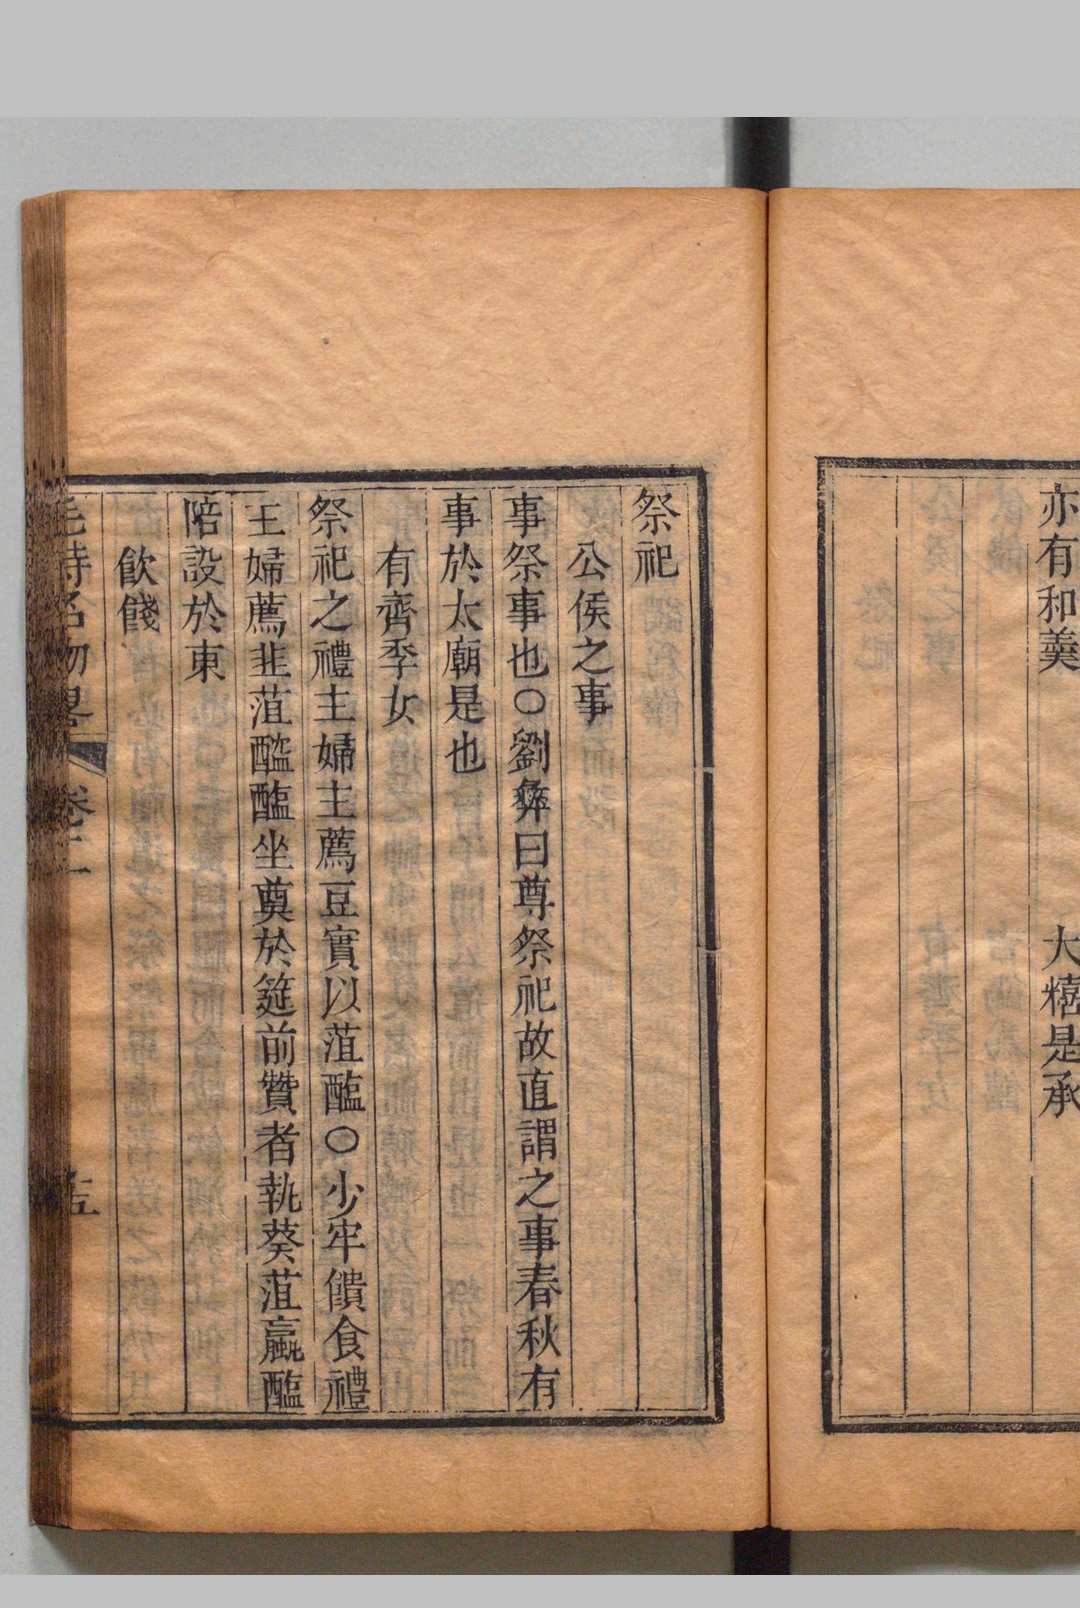 亦有和羹
大糦是承
祭祀
公侯之事
事祭事也○劉彝曰尊祭祀故直謂之事春秋有
事於太廟是也
有齊季女
祭祀之禮主婦主薦豆實以菹醢○少牢饋食禮
王婦薦韭菹醓醢坐奠於筵前贊者執葵菹蠃醢
陪設於東
飲餞
毛詩名物畧 卷二 五